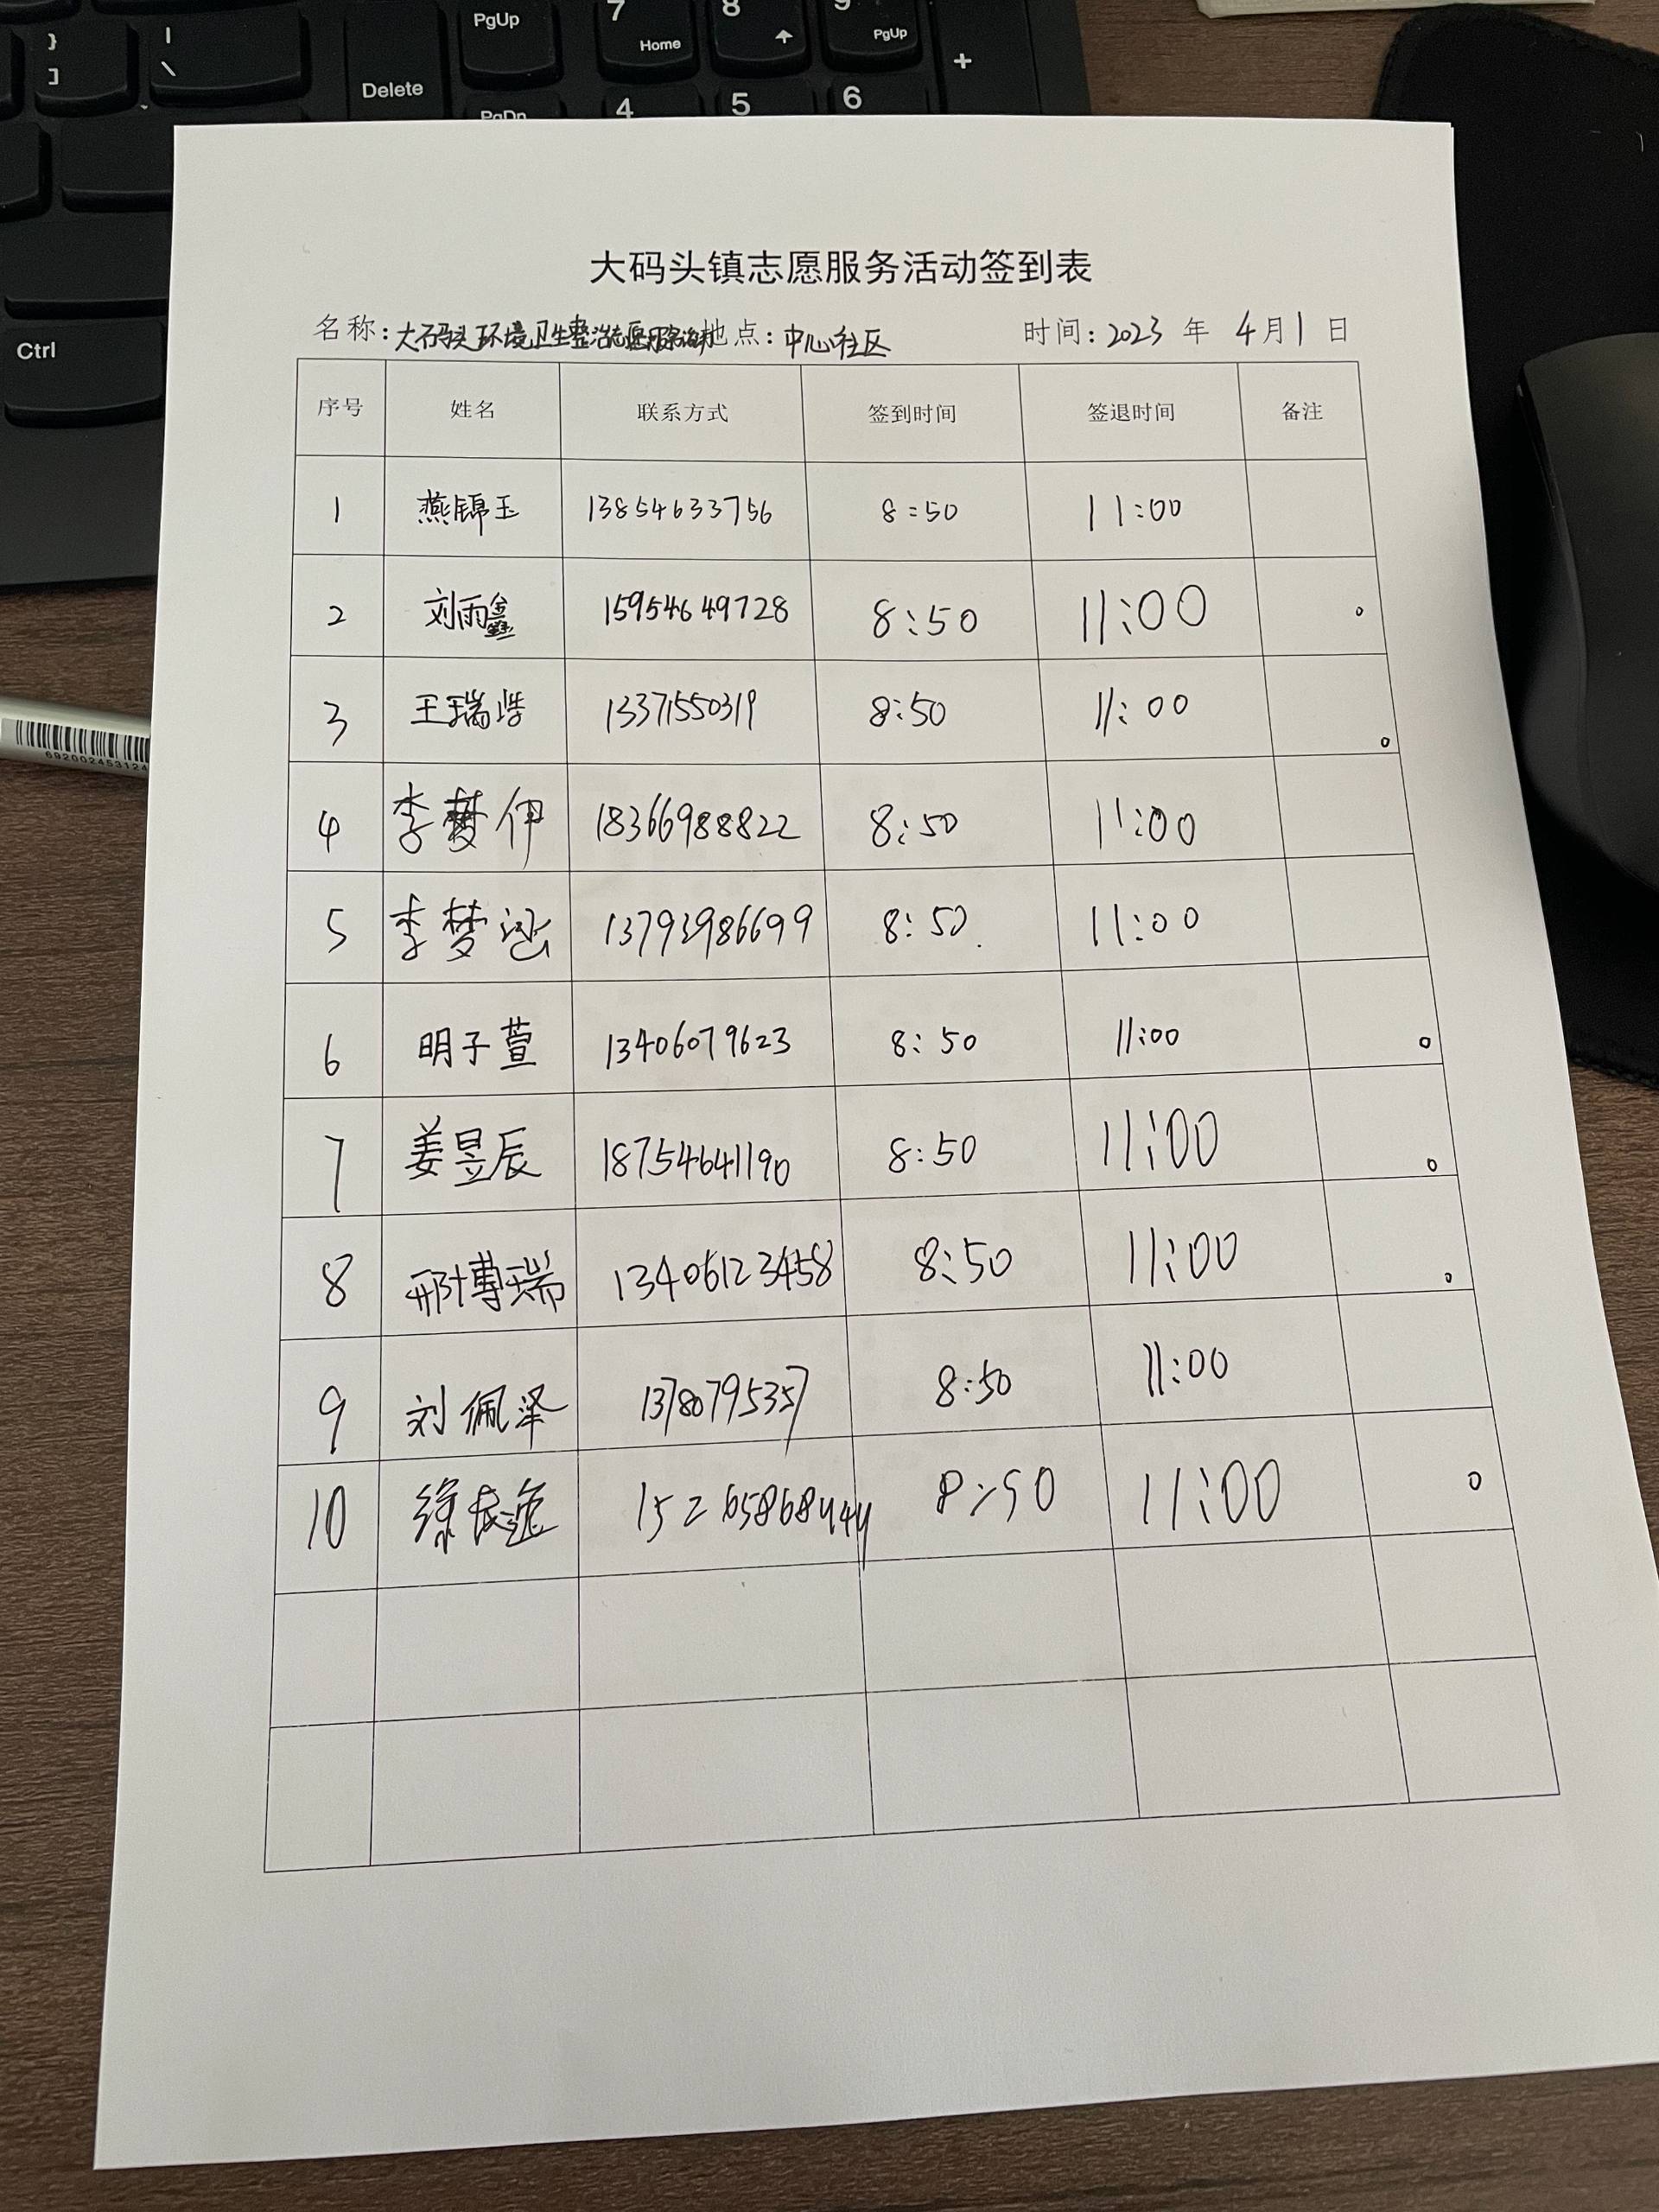 PgUp
7
Home
8
9
PgUp
}
]
|
\
Delete
PgDn
4
5
6
+
Ctrl
大码头镇志愿服务活动签到表
名称:大码头环境卫生整治志愿服务活动 地点:中心社区 时间:2023 年 4月1日
序号 姓名 联系方式 签到时间 签退时间 备注
1 燕锦玉 13854633756 8:50 11:00
2 刘雨鑫 15954649728 8:50 11:00 。
3 王瑞 13371550319 8:50 11:00 。
4 李梦伊 18366988822 8:50 11:00
5 李梦涵 13793986699 8:50. 11:00
6 明子萱 13406079623 8:50 11:00 。
7 姜昱辰 18754641190 8:50 11:00 。
8 邢博瑞 13406123458 8:50 11:00 。
9 刘佩泽 13780795357 8:50 11:00
10 徐 8:50 11:00 。
692002453124